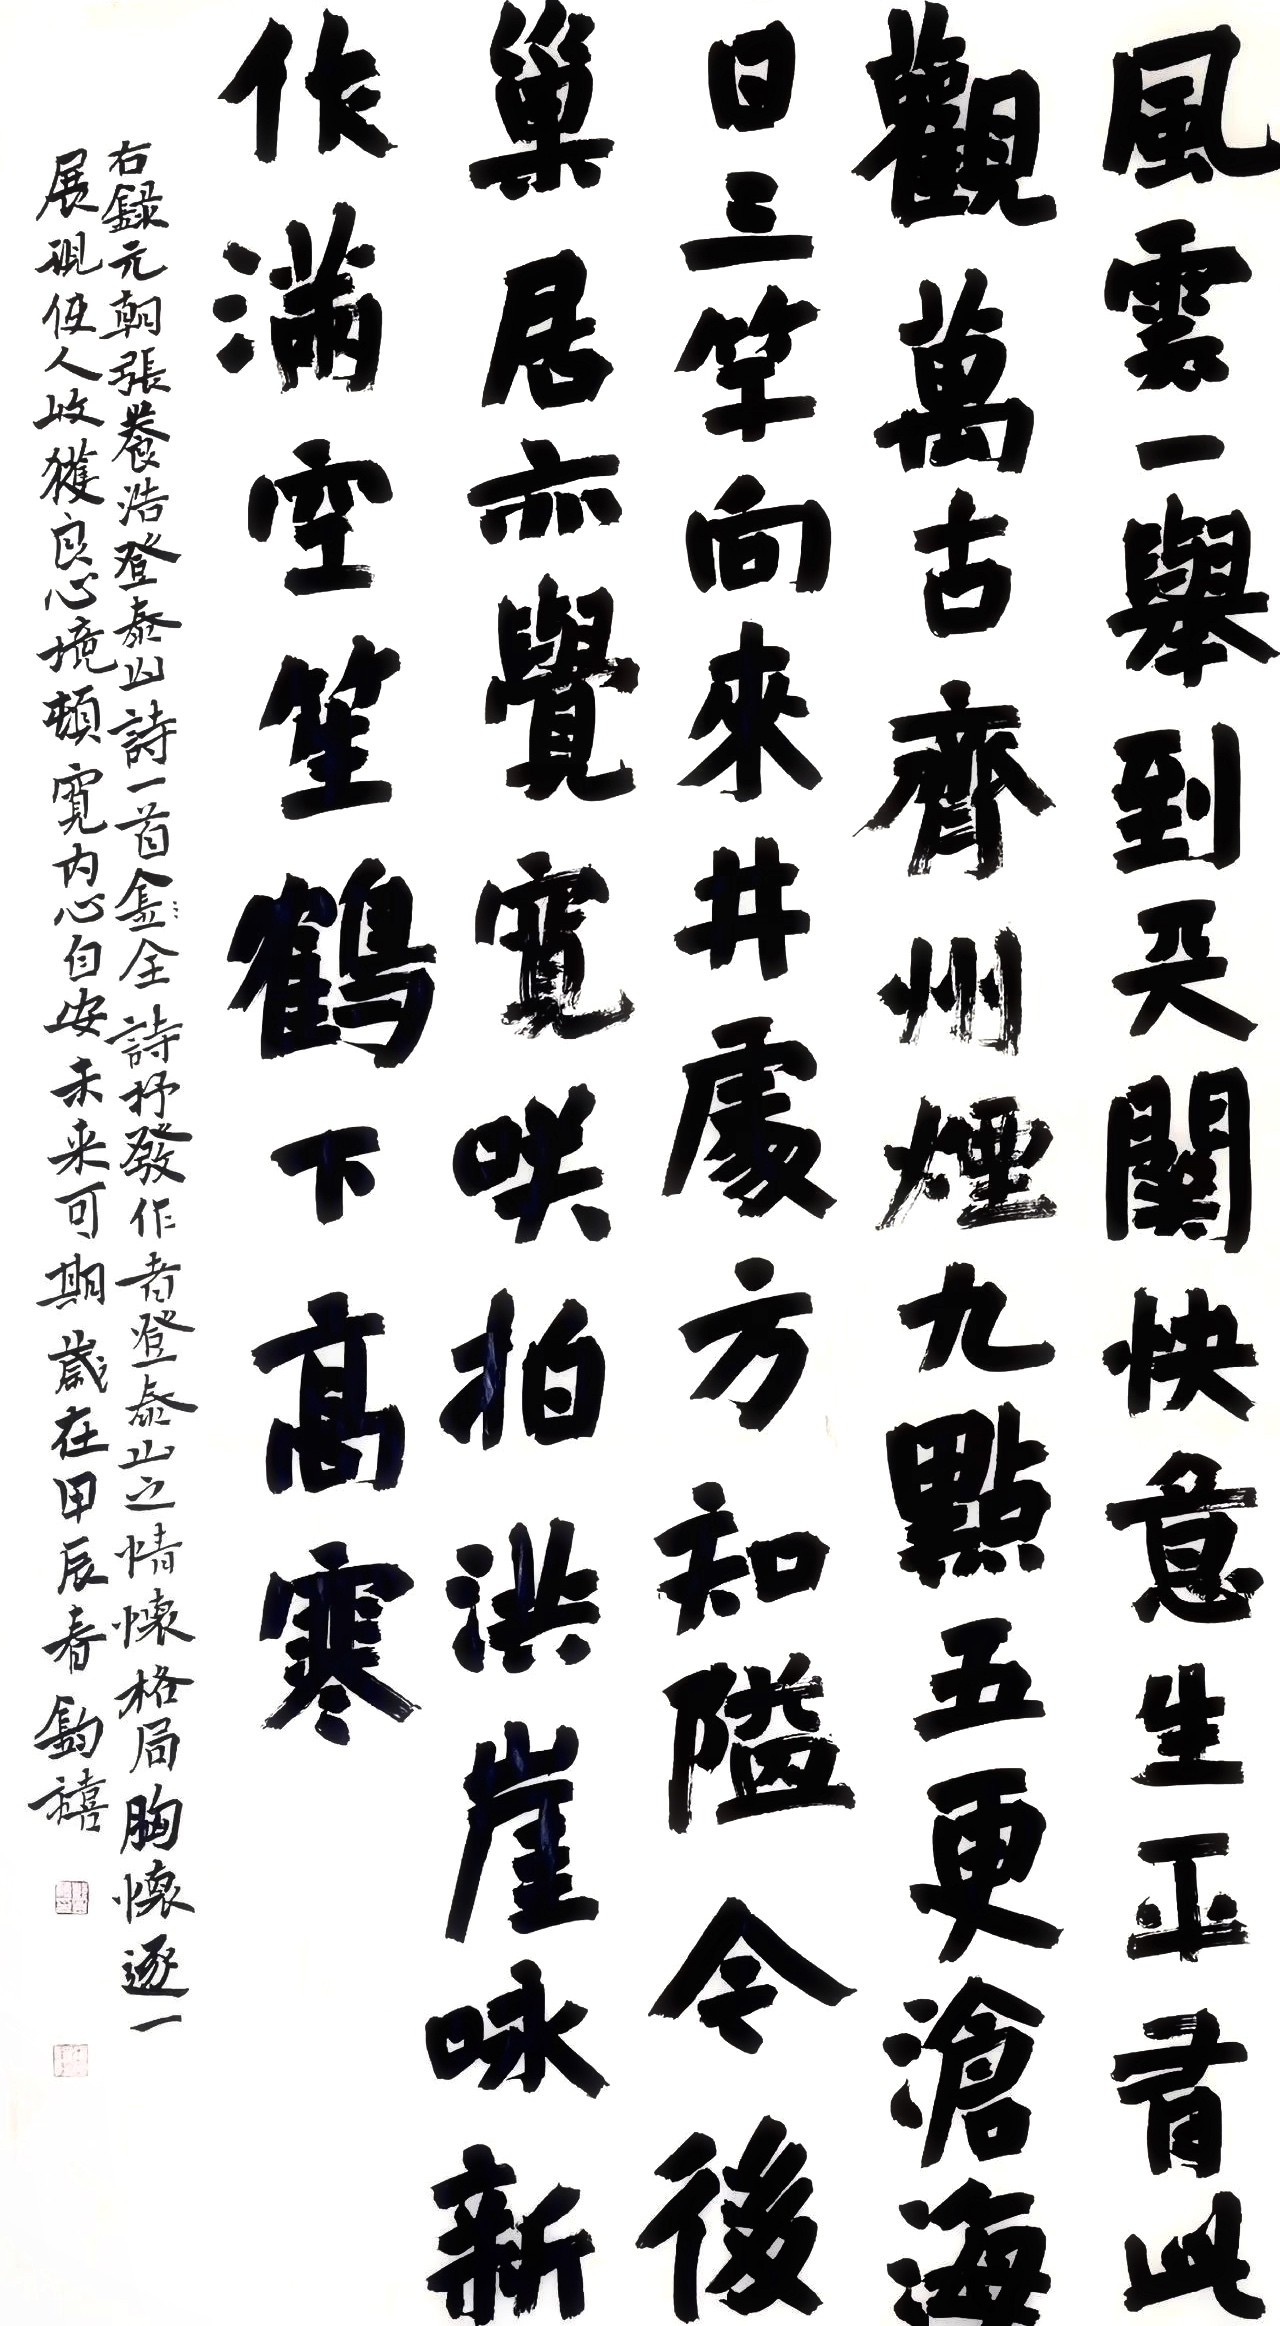 風雲一舉到天關快意生平有此
觀萬古齊州煙九點五更滄海
日三竿向來井處方知隘今後
巢居亦覺寬咲拍洪崖咏新
作滿空笙鶴下高寒
右錄元朝張養浩登泰山詩一首全詩抒發作者登泰山之情懷格局胸懷逐一
展現使人收獲良心境頓寬內心自安未来可期歲在甲辰春鈞禧